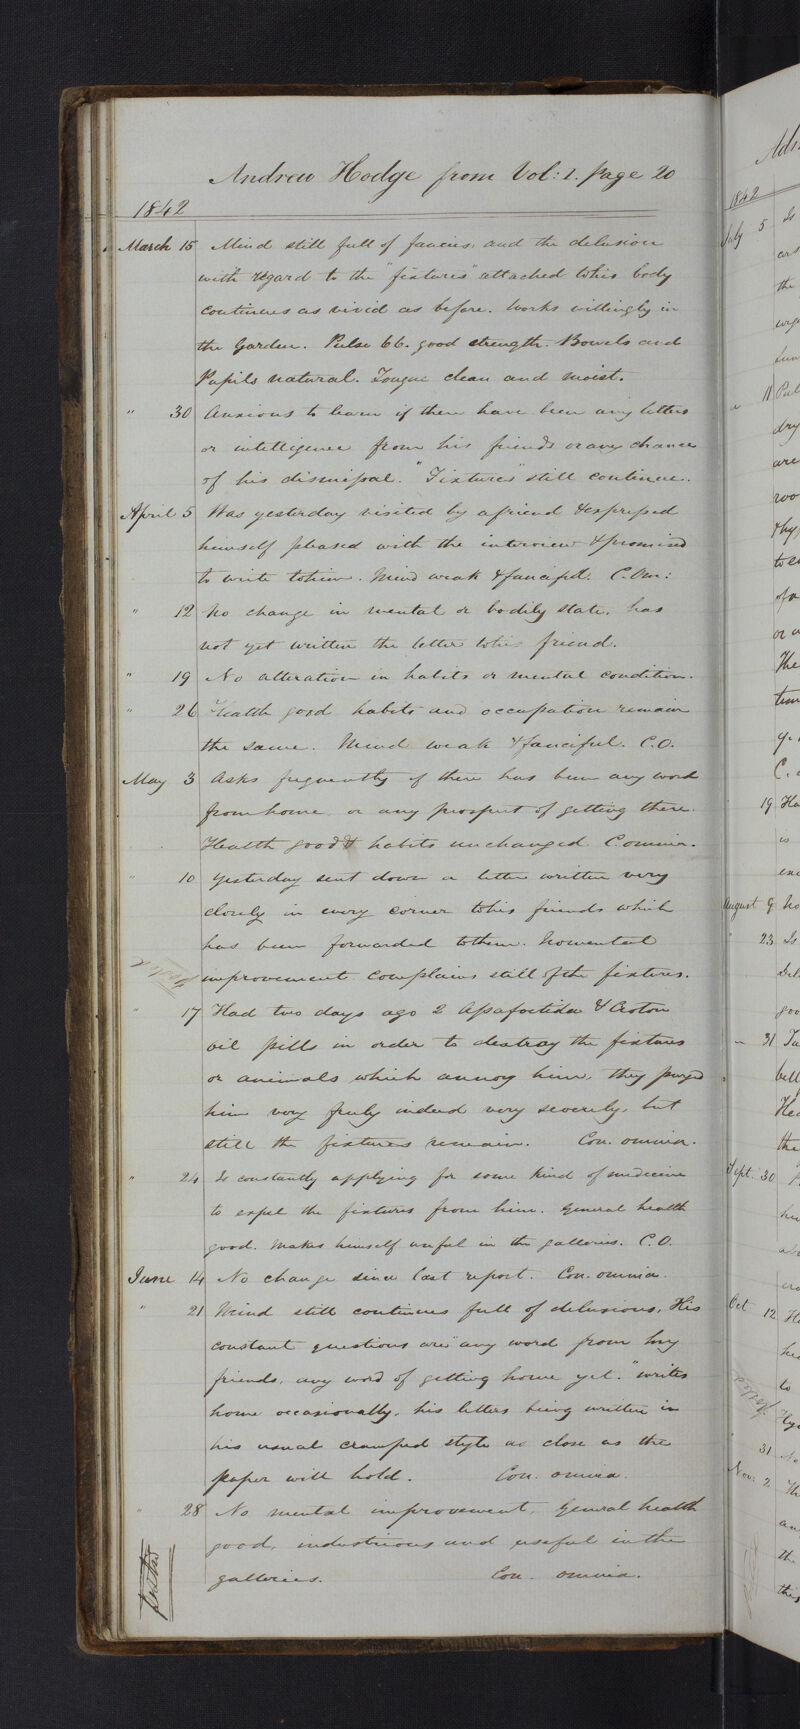 Andrew Hodge from Vol: 1. page 20
1842
March 15 Mind still full of fancies, and the delusion
with regard to the "fixtures" attached to his body
continues as vivid as before. Works willingly in
the Garden. Pulse 66. good strength. Bowels and
Pupils natural. Tongue clean and moist.
" 30 Anxious to learn if there have been any letters
or intelligence from his friends or any chance
of his dismissal. "Fixtures" still continue.
April 5 Was yesterday visited by a friend & expressed
himself pleased with the interview & promised
to write to him. Mind weak & fanciful. C. Om:
" 12 No change in mental or bodily state. has
not yet written the letter to his friend.
" 19 No alteration in habits or mental condition.
" 26 Health good habits and occupation remain
the same. Mind weak & fanciful. C.O.
May 3 Asks frequently if there has been any word
from home or any prospect of getting there.
Health good & habits unchanged. C. omnia.
" 10 Yesterday sent down a letter written very
closely in every corner to his friends which
has been forwarded to them. No mental
improvement. Complains still of the fixtures.
" 17 Had two days ago 2 Assafoetida & Croton
oil pills in order to destroy the fixtures
or animals which annoy him, they purged
him very freely indeed very severely, but
still the fixtures remain. Con. omnia.
" 24 Is constantly applying for some kind of medicine
to expel the fixtures from him. General health
good. Makes himself useful in the galleries. C.O.
June 14 No change since last report. Con. omnia.
" 21 Mind still continues full of delusions, His
constant questions are "any word from my
friends, any word of getting home yet." writes
home occasionally, his letters being written in
his usual cramped style as close as the
paper will hold. Con. omnia.
" 28 No mental improvement. General health
good, industrious and useful in the
galleries. Con. omnia.
posted
1842
July 5 Is
the
11 Pul
dry
are
or
The
19 Ha
is
August 9 No
" 23 Is
Del
31
the
Sept. 30
Oct 12
to
31 No
Nov: 2 Th
an
the
this